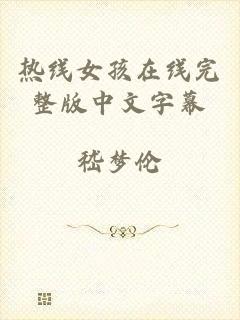 热线女孩在线完
整版中文字幕
嵇梦伦